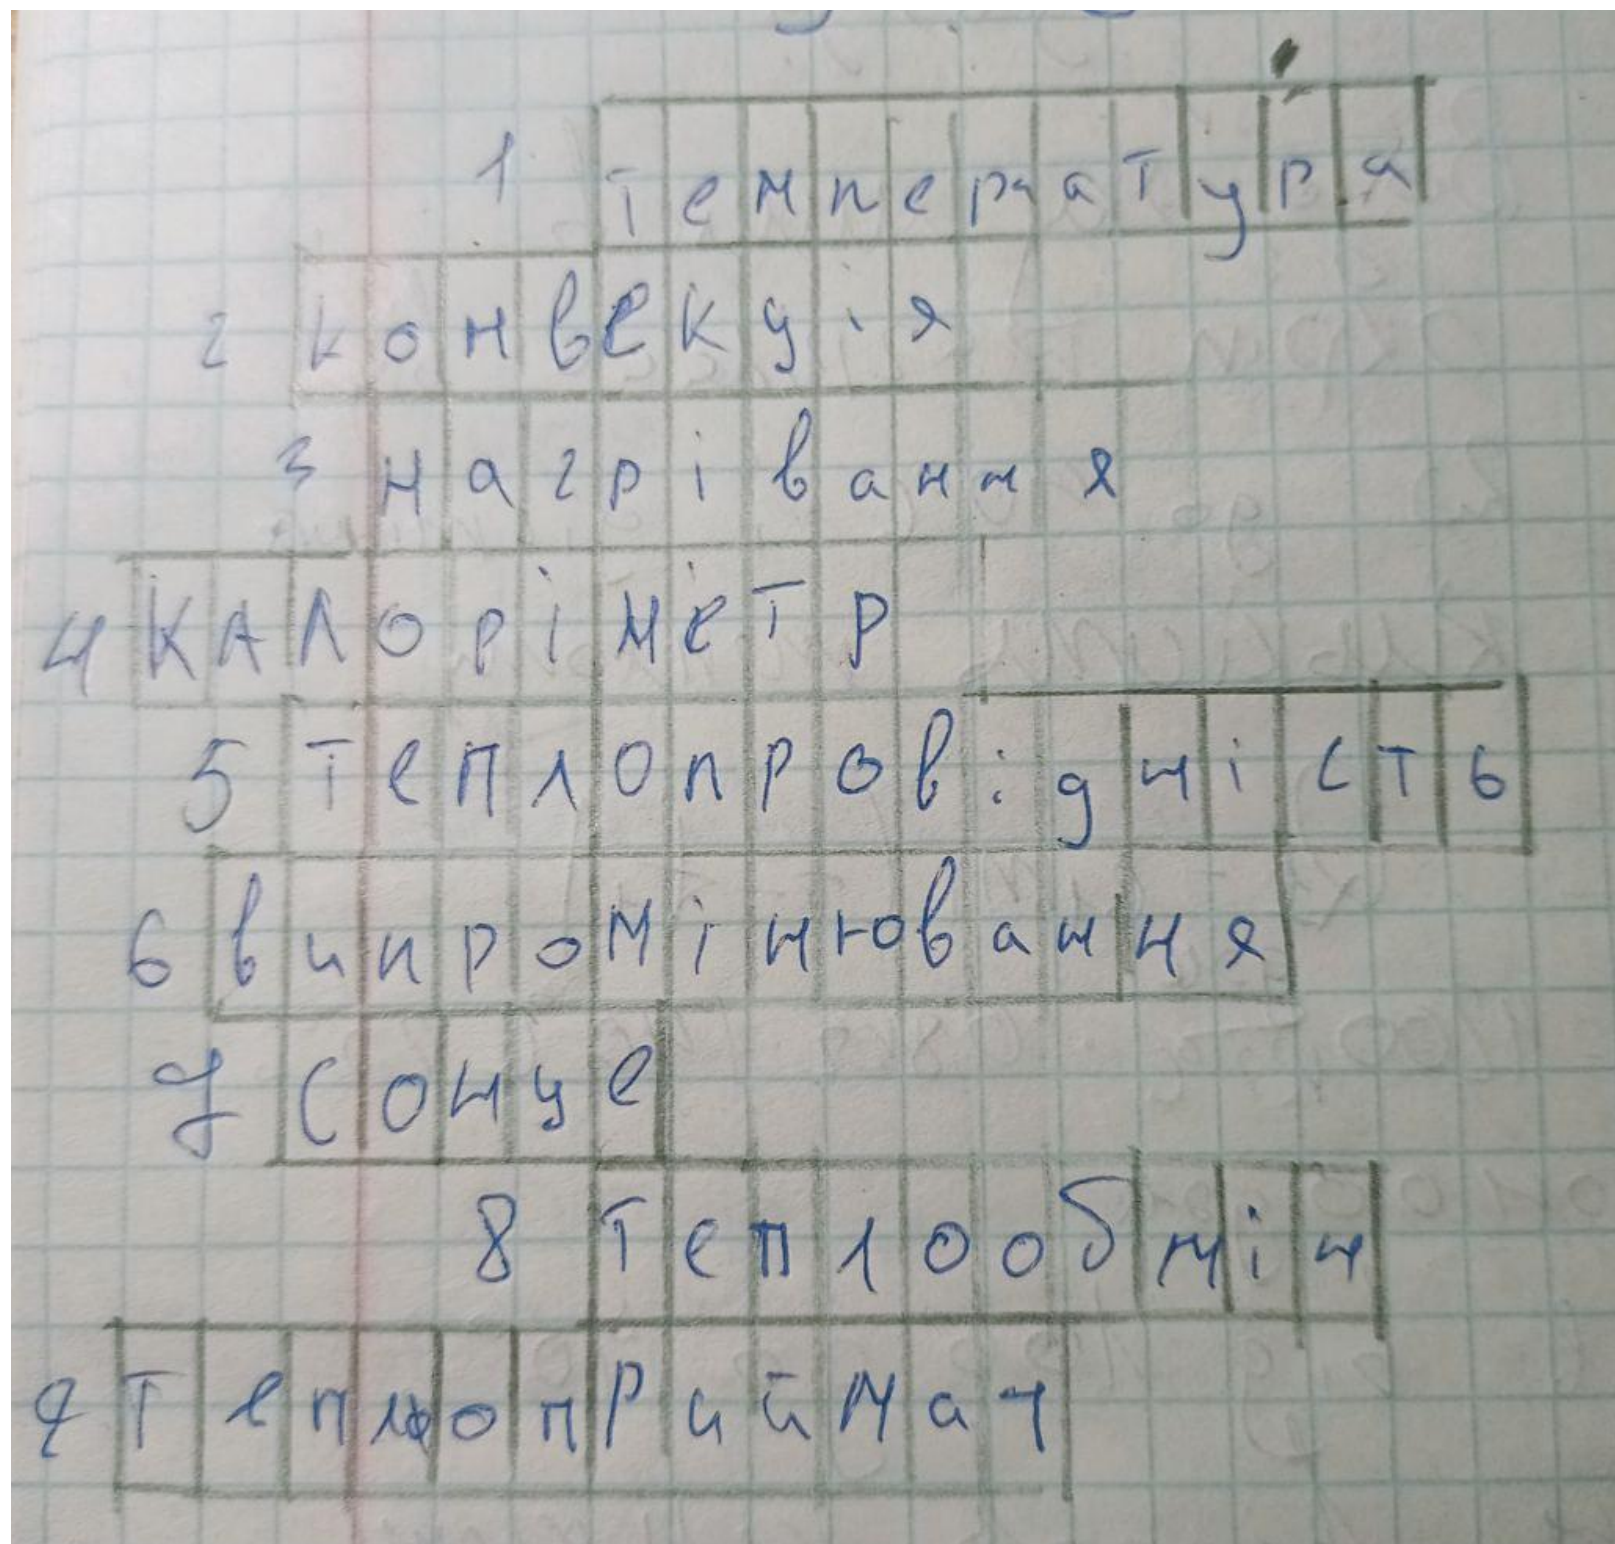 1 температура
2 конвекція
3 нагрівання
4 КАЛоріметр
5 теплопровідність
6 випромінювання
7 Сонце
8 Теплообмін
9 Теплоприймач